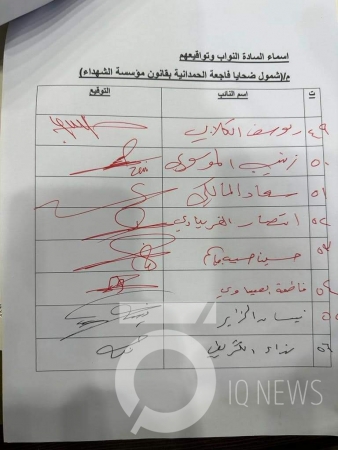 اسماء السادة النواب وتواقيعهم
م/(شمول ضحايا فاجعة الحمدانية بقانون مؤسسة الشهداء)
ت اسم النائب التوقيع
٤٩ يوسف الكلابي
٥٠ زينب الموسوي
٥١ سعاد المالكي
٥٢ انتصار الغريباوي
٥٣ حسين حسيب
٥٤ فاطمة العيساوي
٥٥ نيسان الزاير
٥٦ نداء الكريطي
IQ NEWS